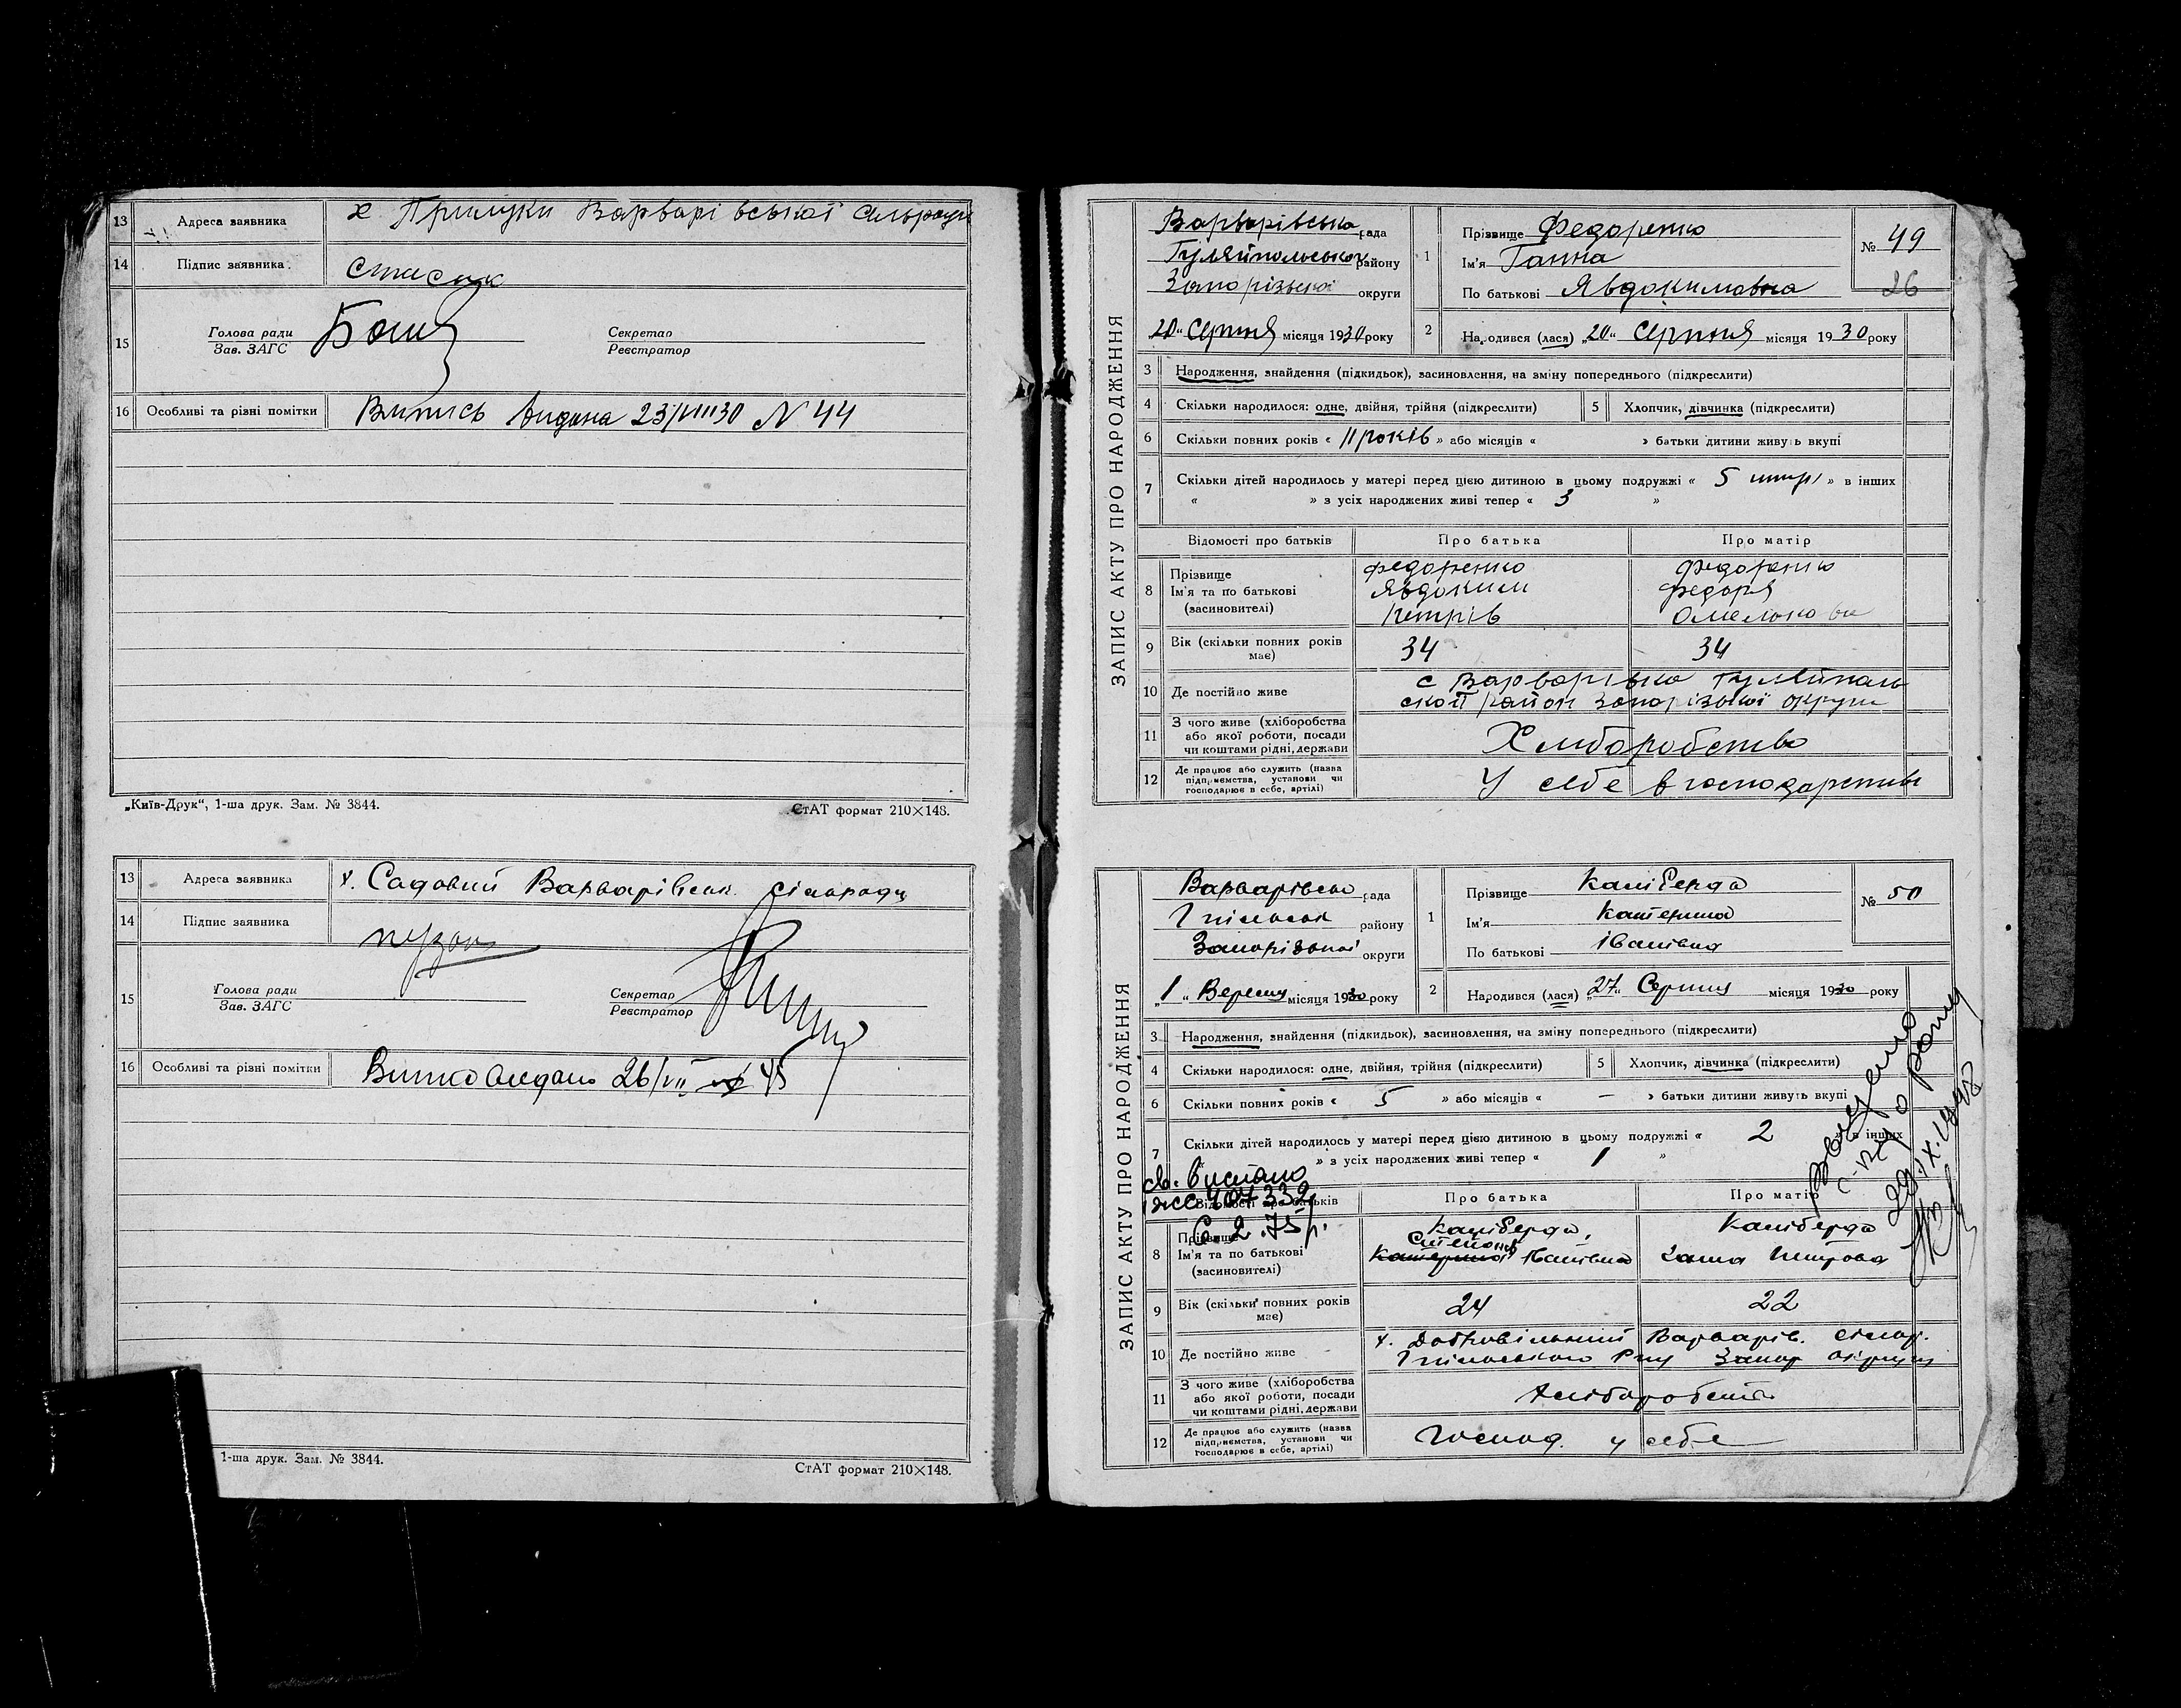 13 Адреса заявника х Прилуки Варварівської сільради
14 Підпис заявника Стасюк
15 Голова ради Секретар
Зав. ЗАГС Реєстратор
16 Особливі та різні помітки Випись видана 23/VIII 30 N 44
„Київ-Друк“, 1-ша друк. Зам. № 3844. СтАТ формат 210×148.
13 Адреса заявника х. Садовий Варварівськ. сільради
14 Підпис заявника
15 Голова ради Секретар
Зав. ЗАГС Реєстратор
16 Особливі та різні помітки 45
1-ша друк. Зам. № 3844. СтАТ формат 210×148.
ЗАПИС АКТУ ПРО НАРОДЖЕННЯ
Варварівська рада
Гуляйпольського району
Запорізької округи
„20“ Серпня місяця 1930 року
1 Прізвище Федоренко
Ім'я Ганна
По батькові Явдокимовна
№ 49
26
2 Народився (лася) „20“ Серпня місяця 1930 року
3 Народження, знайдення (підкидьок), засиновлення, на зміну попереднього (підкреслити)
4 Скільки народилося: одне, двійня, трійня (підкреслити) 5 Хлопчик, дівчинка (підкреслити)
6 Скільки повних років « 11 років » або місяців « » батьки дитини живуть вкупі
7 Скільки дітей народилось у матері перед цією дитиною в цьому подружжі « 5 » в інших
« » з усіх народжених живі тепер « 3 »
Відомості про батьків Про батька Про матір
8 Прізвище Федоренко Федоренко
Ім'я та по батькові Явдоким Федоря
(засиновителі) Петрів
9 Вік (скільки повних років має) 34 34
10 Де постійно живе с Варварівка Гуляйполь
ської район Запорізької округи
11 З чого живе (хліборобства
або якої роботи, посади
чи коштами рідні, держави Хліборобство
12 Де працює або служить (назва
підприємства, установи чи
господарює в себе, артілі) У себе в господарстві
ЗАПИС АКТУ ПРО НАРОДЖЕННЯ
Варварівськ рада
Гпільськ району
Запорізької округи
„1“ Вересня місяця 1930 року
1 Прізвище Каніберда
Ім'я Катерина
По батькові Іванівна
№ 50
2 Народився (лася) „27“ Серпня місяця 1930 року
3 Народження, знайдення (підкидьок), засиновлення, на зміну попереднього (підкреслити)
4 Скільки народилося: одне, двійня, трійня (підкреслити) 5 Хлопчик, дівчинка (підкреслити)
6 Скільки повних років « 5 » або місяців « — » батьки дитини живуть вкупі
7 Скільки дітей народилось у матері перед цією дитиною в цьому подружжі « 2 » в інших
» з усіх народжених живі тепер « 1 »
Відомості про батьків Про батька Про матір
8 Прізвище Каніберда Каніберда
Ім'я та по батькові Катерина Іванівна Петрова
(засиновителі)
9 Вік (скільки повних років має) 24 22
10 Де постійно живе х. Добровільний Варварів. сільр.
Гпільського Р-ну Запор округи
11 З чого живе (хліборобства
або якої роботи, посади
чи коштами рідні, держави Хліборобства
12 Де працює або служить (назва
підприємства, установи чи
господарює в себе, артілі) Господ. у себе